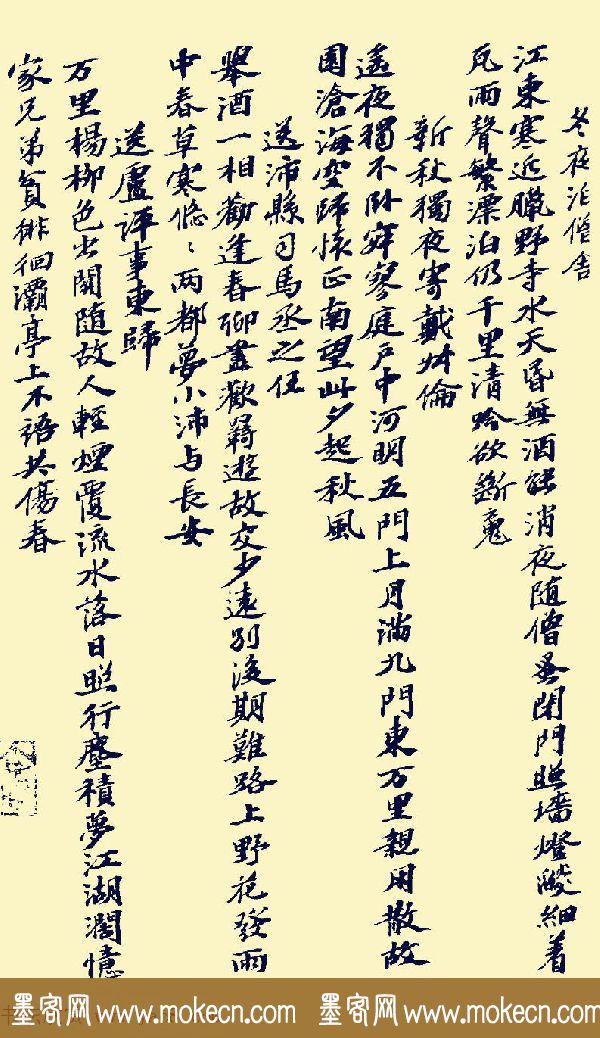 冬夜泊僧舍
江東寒近臘野寺水天昏無酒能消夜随僧蚤閉門照墻燈燄細着
瓦雨聲繁漂泊仍千里清吟欲斷魂
新秋獨夜寄戴叔倫
遙夜獨不卧寂寥庭户中河明五門上月滿九門東万里親朋散故
園滄海空歸懷正南望此夕起秋風
送沛縣司馬丞之任
舉酒一相勸逢春聊盡歡羇遊故交少遠别後期難路上野花發雨
中春草寒悠〻兩都夢小沛与長安
送盧評事東歸
万里楊柳色出關随故人輕煙覆流水落日照行塵積夢江湖濶憶
家兄弟貧徘徊灞亭上不語共傷春
墨客网 www.mokecn.com 墨客网 www.mokecn.com